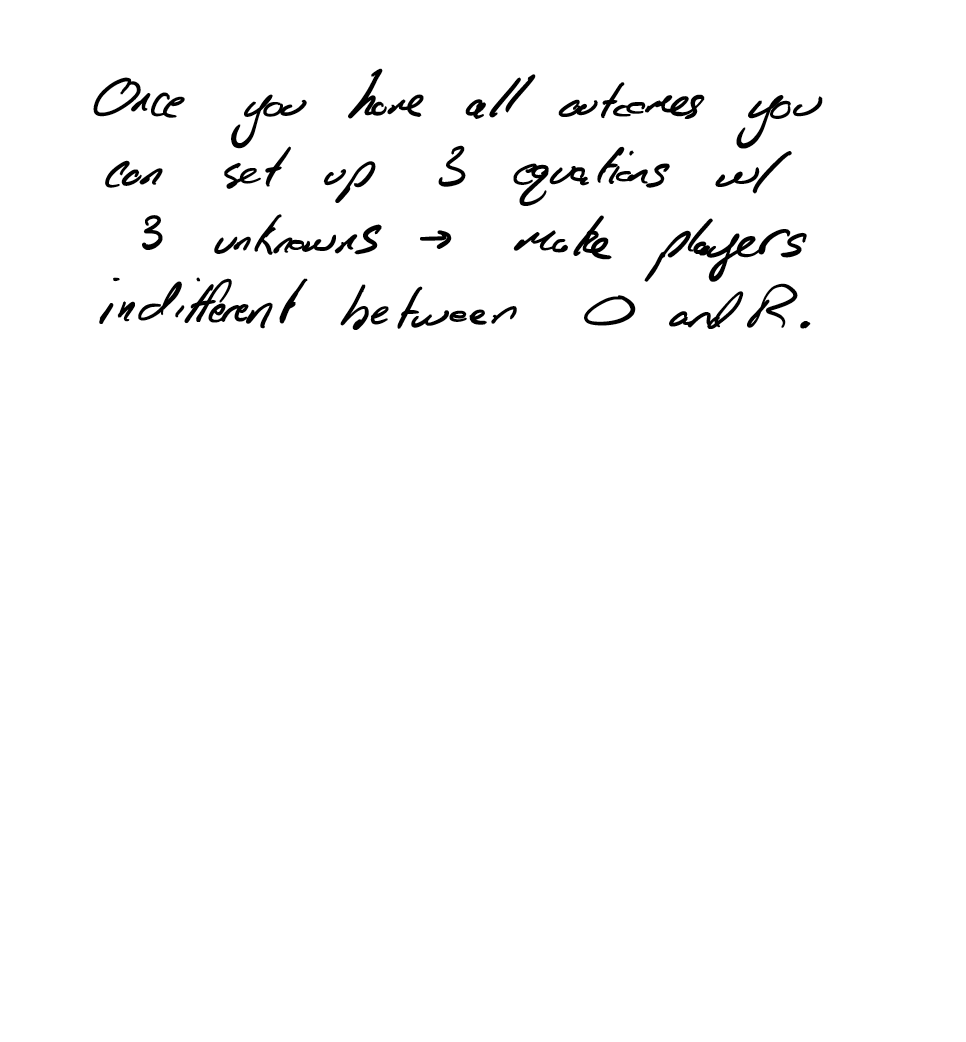 Once you have all outcomes you
can set up 3 equations w/
3 unknowns → make players
indifferent between O and R.